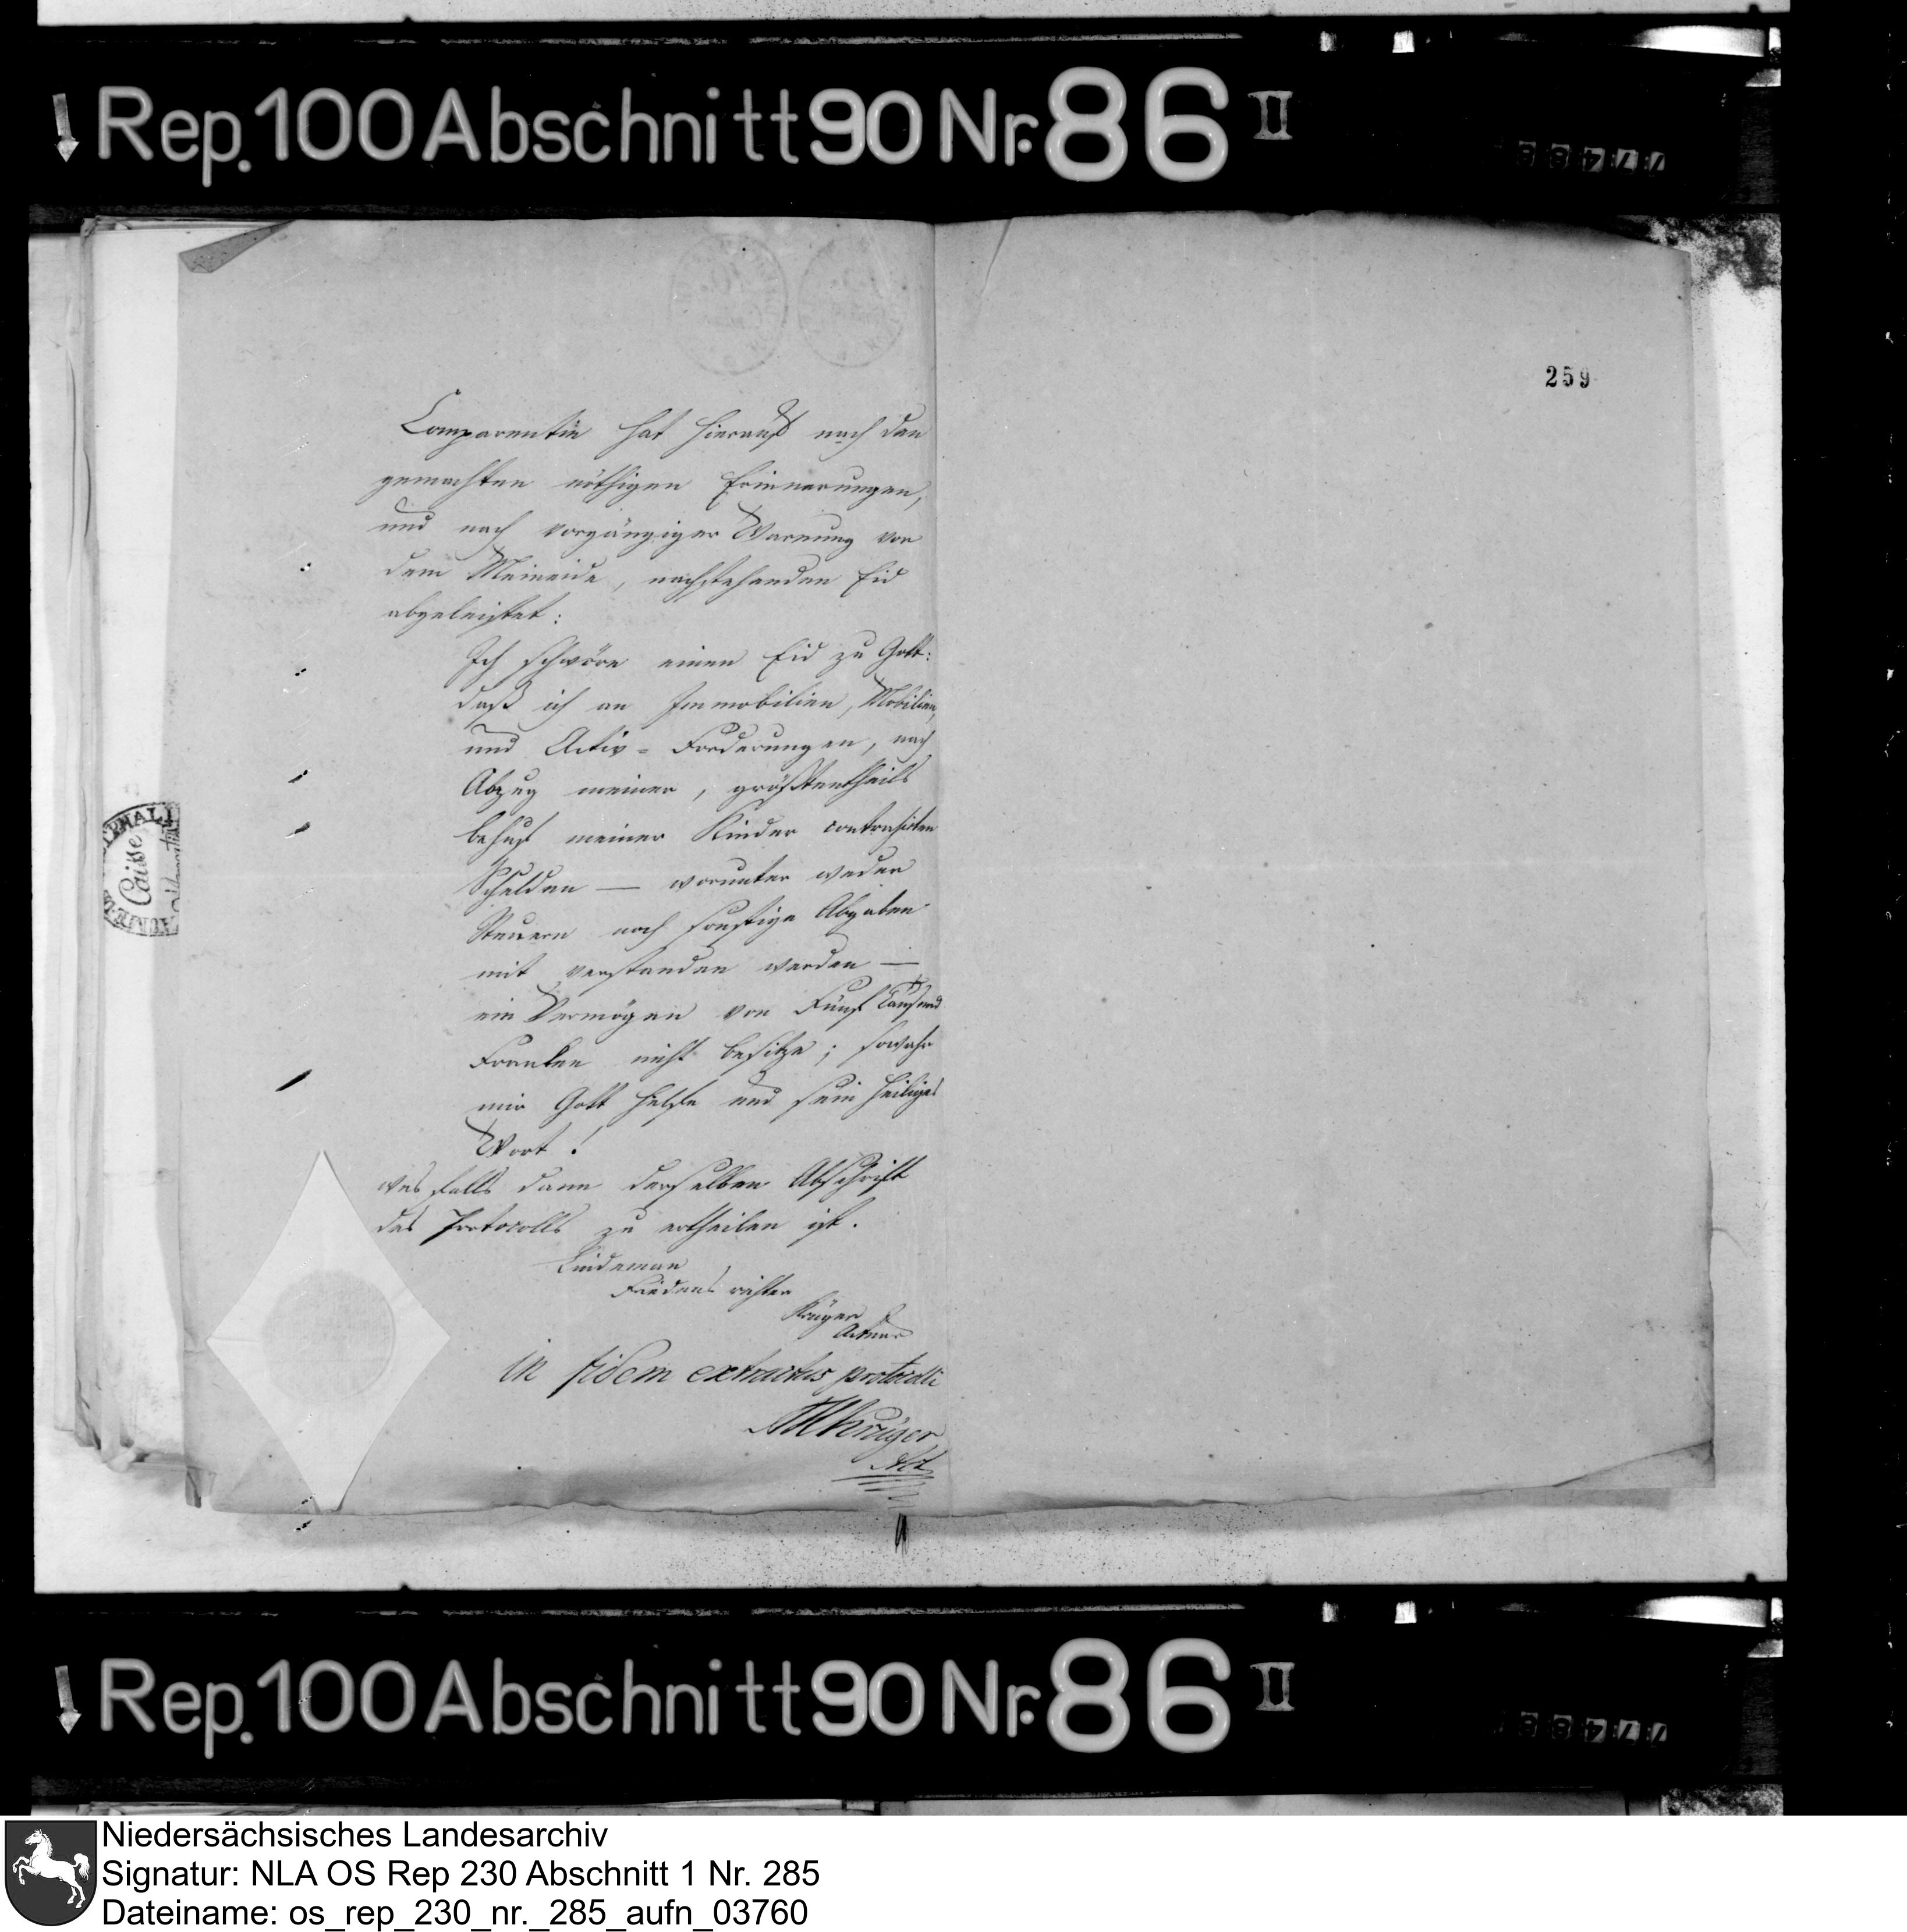 Rep. 100 Abschnitt 90 Nr. 86 II
259
Comparentin hat hierauf nach den
gemachten nöthigen Erinnerungen,
und nach vorgängiger Warnung vor
dem Meineide, nachstehenden Eid
abgeleistet:
Ich schwöre einen Eid zu Gott:
daß ich an Immobilien, Mobilien,
und Activ-Forderungen, nach
Abzug meiner, größtentheils
behuf meiner Kinder contrahirten
Schulden — worunter weder
Steuern noch sonstige Abgaben
mit verstanden werden —
ein Vermögen von Fünf Tausend
Franken nicht besitze; sowahr
mir Gott helfe und sein heiliges
Wort!
wesfalls dann derselben Abschrift
des Protocolls zu ertheilen ist.
Lindeman
Friedensrichter
Krüger
Actuar
in fidem extractus protocolli
Krüger
Act
Caisse
Rep. 100 Abschnitt 90 Nr. 86 II
Niedersächsisches Landesarchiv
Signatur: NLA OS Rep 230 Abschnitt 1 Nr. 285
Dateiname: os_rep_230_nr._285_aufn_03760